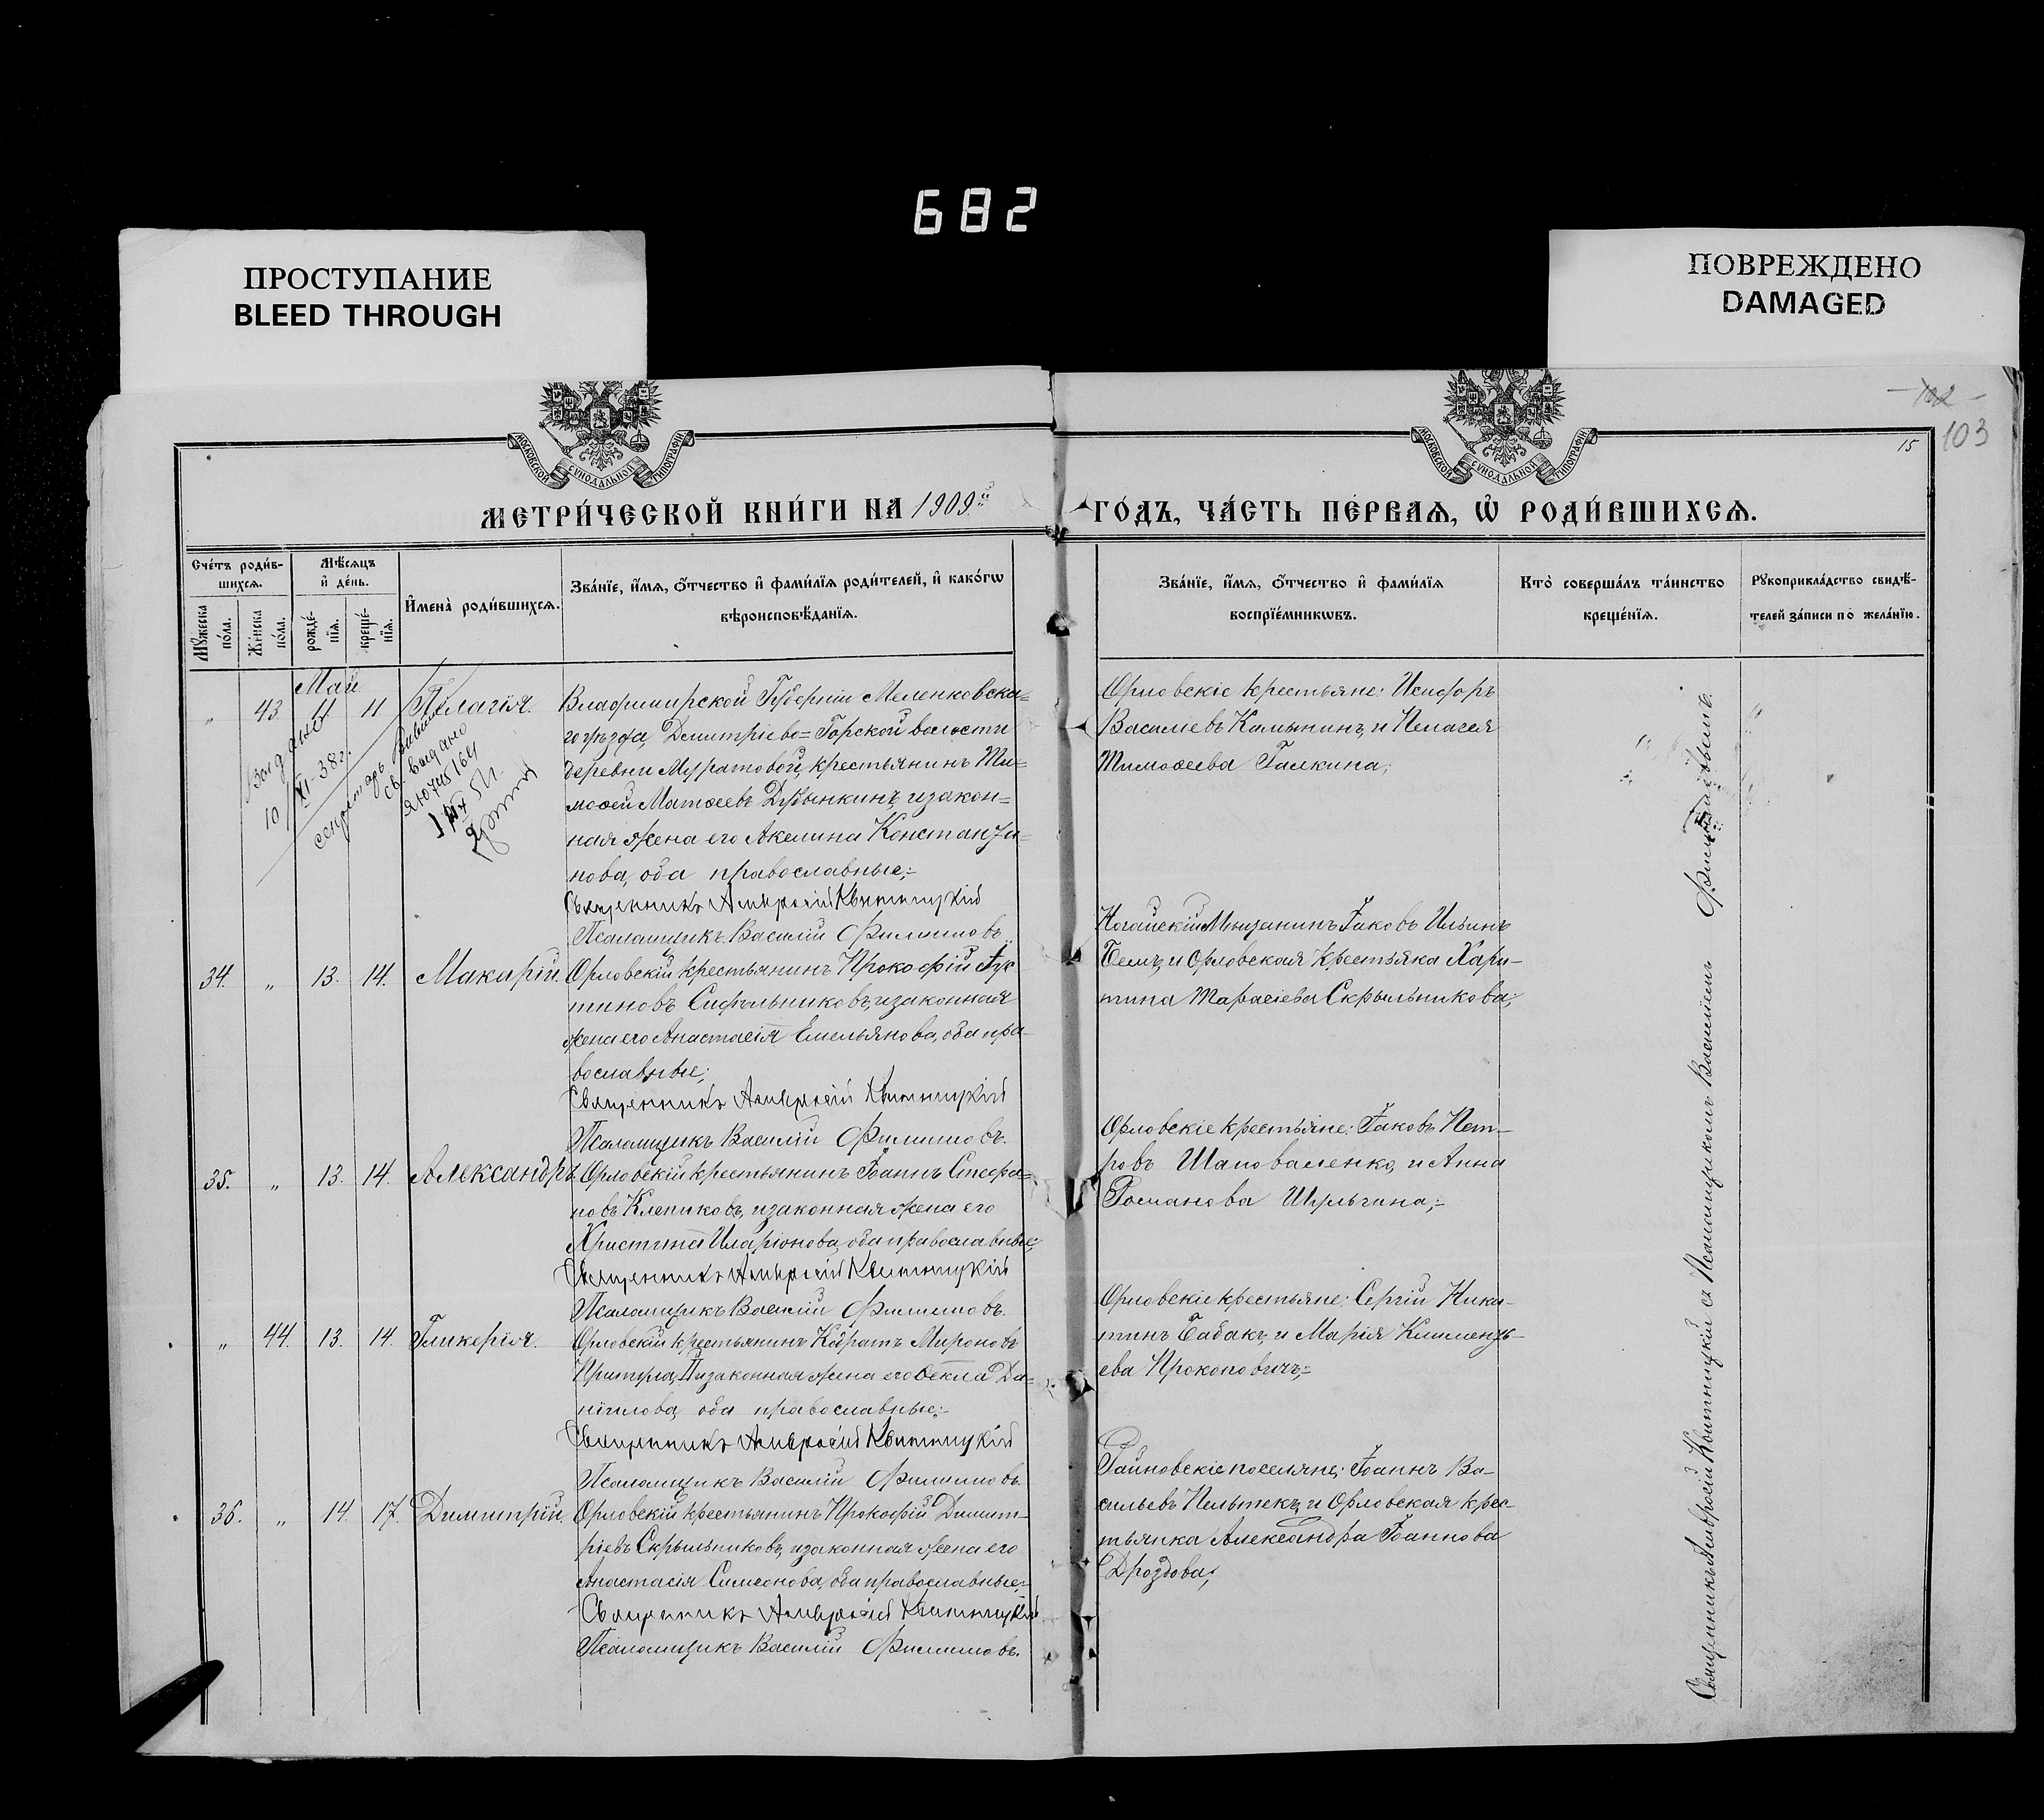 682
ПРОСТУПАНИЕ
BLEED THROUGH
ПОВРЕЖДЕНО
DAMAGED
МОСКОВСКОЙ СѴНОДАЛЬНОЙ ТИПОГРАФІИ
МОСКОВСКОЙ СѴНОДАЛЬНОЙ ТИПОГРАФІИ
102
103
15
МЕТРИ́ЧЕСКОЙ КНИ́ГИ НА 1909й
ГО́ДЪ, ЧА́СТЬ ПЕ́РВАѦ, Ѡ҆ РОДИ́ВШИХСѦ.
Сче́тъ роди́в-
шихсѧ.
Мꙋ́жеска по́ла.
Же́нска по́ла.
Мѣ́сѧцъ
и҆ де́нь.
рожде́-
нїѧ.
креще́-
нїѧ.
И҆мена̀ роди́вшихсѧ.
Зва́нїе, и҆́мѧ, ѻ҆́тчество и҆ фами́лїѧ роди́телей, и҆ како́гѡ
вѣроисповѣ́данїѧ.
Зва́нїе, и҆́мѧ, ѻ҆́тчество и҆ фами́лїѧ
воспрїе́мникѡвъ.
Кто̀ соверша́лъ та́инство
креще́нїѧ.
Рꙋкоприкла́дство свидѣ́-
телей за́писи по жела́нїю.
Май
„ 43. 11 11 Пелагія.
Владимирской Губерніи Меленковска-
го уѣзда, Димитріево-Горской волости
деревни Муратовой, крестьянинъ Ти-
моѳей Матѳеевъ Дубынкинъ, и закон-
ная жена его Акелина Константи-
нова, оба православные;-
Священникъ Амвросій Квитницкій
Псаломщикъ Василій Филиповъ.
Выдано
10/XI-38г.
секретарь
св. выдано
ЯЮ №
Орловскіе крестьяне: Исидоръ
Васильевъ Калынинъ, и Пелагея
Тимоѳеева Галкина;
34. „ 13. 14. Макарій.
Орловскій крестьянинъ Прокофій Іус-
тиновъ Сидельниковъ, и законная
жена его Анастасія Емельянова, оба пра-
вославные;
Священникъ Амвросій Квитницкій
Псаломщикъ Василій Филиповъ.
Ногайскій Мѣщанинъ Іаковъ Ильинъ
Беемъ, и Орловская Крестьянка Хари-
тина Тарасіева Скрыльникова;
35. „ 13. 14. Александръ.
Орловскій крестьянинъ Іоаннъ Стефа-
новъ Клепиковъ, и законная жена его
Христина Иларіонова, оба православные;
Священникъ Амвросій Квитницкій
Псаломщикъ Василій Филиповъ.
Орловскіе крестьяне: Іаковъ Пет-
ровъ Шаповаленко, и Анна
Романова Шульгина;-
„ 44. 13. 14. Гликерія.
Орловскій крестьянинъ Кодратъ Мироновъ
Притула, и законная жена его Ѳекла Да-
нііилова, оба православные;-
Священникъ Амвросій Квитницкій
Псаломщикъ Василій Филиповъ.
Орловскіе крестьяне: Сергій Ники-
тинъ Бабакъ, и Марія Клименть-
ева Прокоповичъ;-
36. „ 14. 17. Димитрій.
Орловскій крестьянинъ Прокофій Димит-
ріевъ Скрыльниковъ, и законная жена его
Анастасія Симеонова, оба православные;-
Священникъ Амвросій Квитницкій
Псаломщикъ Василій Филиповъ.
Райновскіе поселяне: Іоаннъ Ва-
сильевъ Пельтекъ, и Орловская крес-
тьянка Александра Іоаннова
Дроздова;
Священникъ Амвросій Квитницкій съ Псаломщикомъ Василіемъ Филиповымъ.